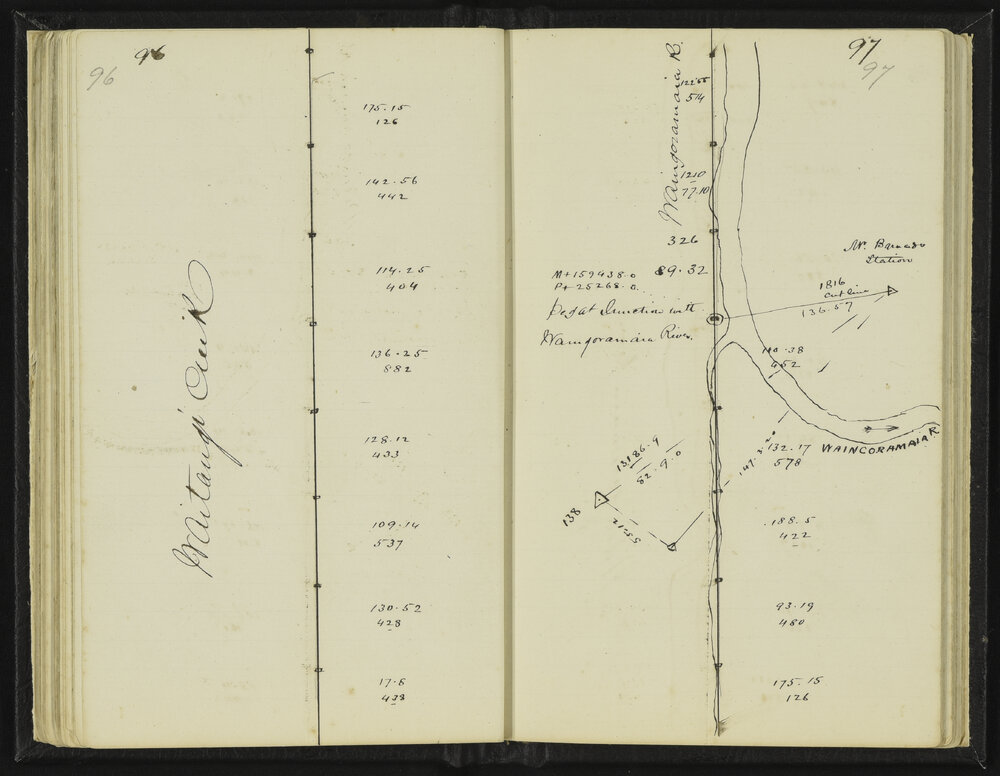 96
96
175.15
126
142.56
442
114.25
404
136.25
882
Waitangi Creek
128.12
433
109.14
537
130.52
428
17.8
438
97
97
Waingoramaia R.
514
1210
77.10
326
89.32
M+159438.0
P+25268.0
Peg at Junction with
Waingoramaia River.
Station
1816
Cut line
136.57
452
WAINGORAMAIA R
132.17
578
147.3
13186.9
82.9.0
138
55.12
188.5
422
93.19
480
175.15
126